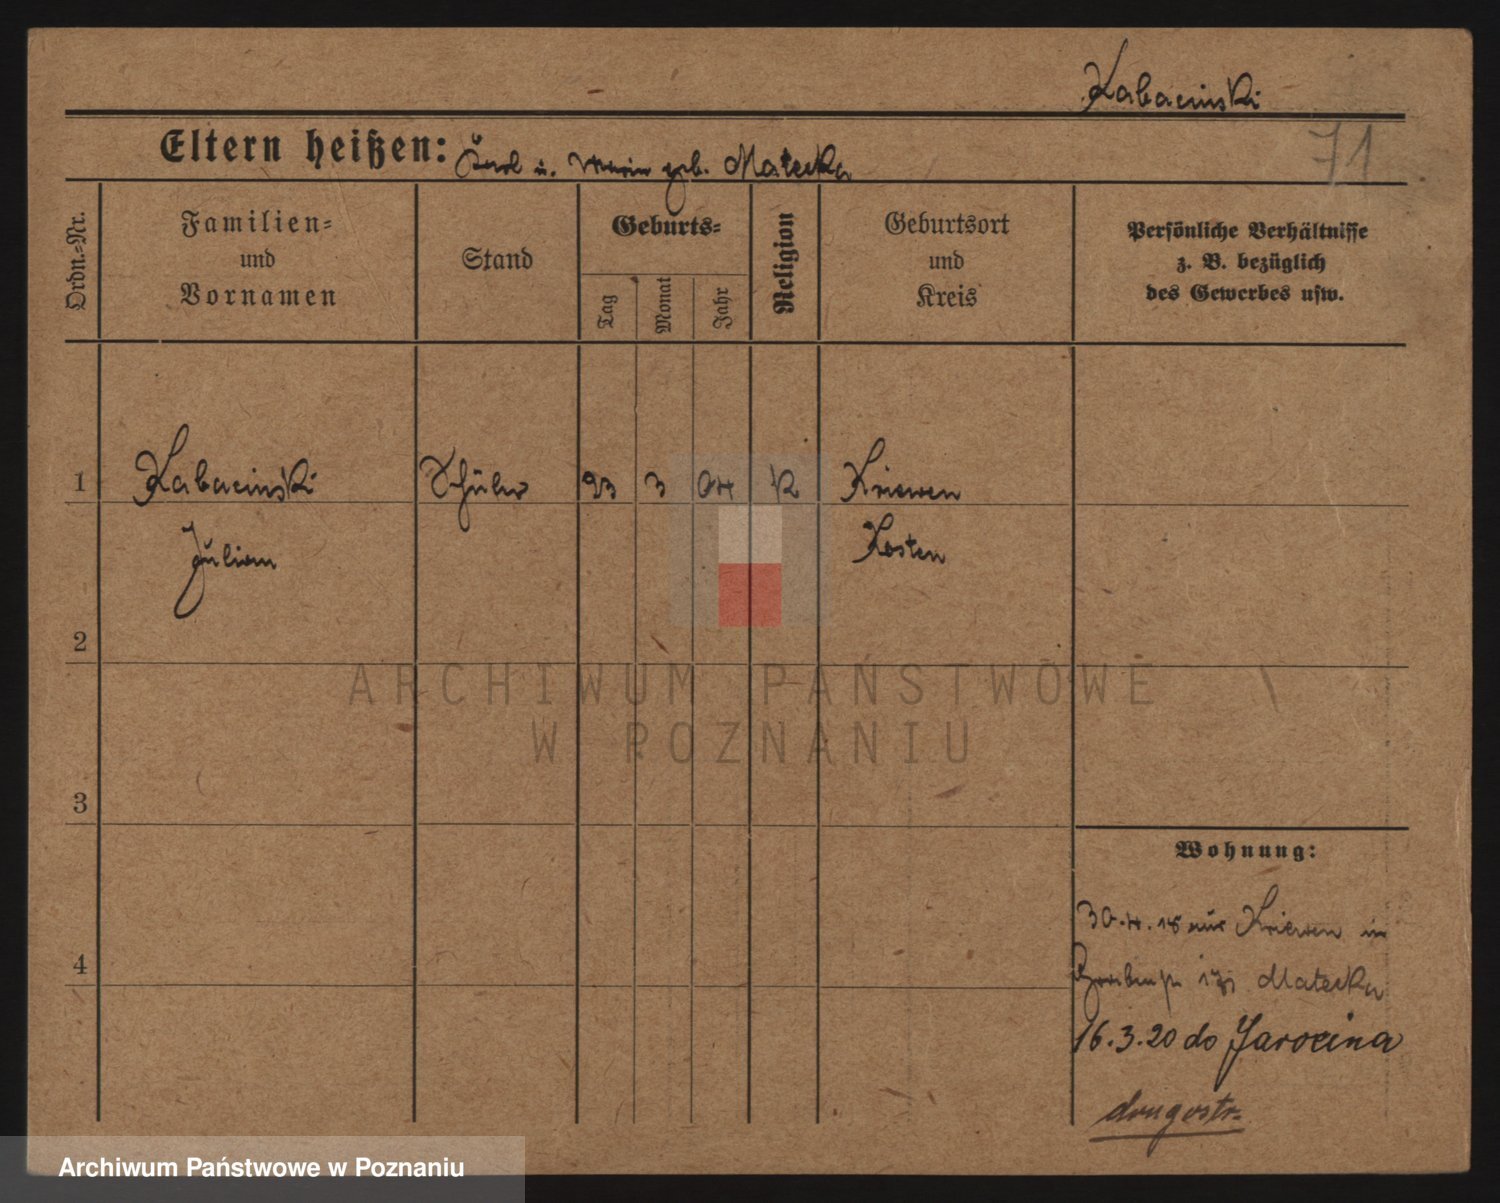 Kabacinski
71
Eltern heißen: Karl u. Maria geb. Matecka
Ordn.=Nr.
Familien=
und
Vornamen
Stand
Geburts=
Tag
Monat
Jahr
Religion
Geburtsort
und
Kreis
Persönliche Verhältnisse
z. B. bezüglich
des Gewerbes usw.
1
Kabacinski
Schüler
23
3
04
K
Kriewen
Julian
Kosten
2
ARCHIWUM PAŃSTWOWE
W POZNANIU
3
Wohnung:
30.4.18 aus Kriewen in
4
Matecka
16.3.20 do Jarocina
Archiwum Państwowe w Poznaniu